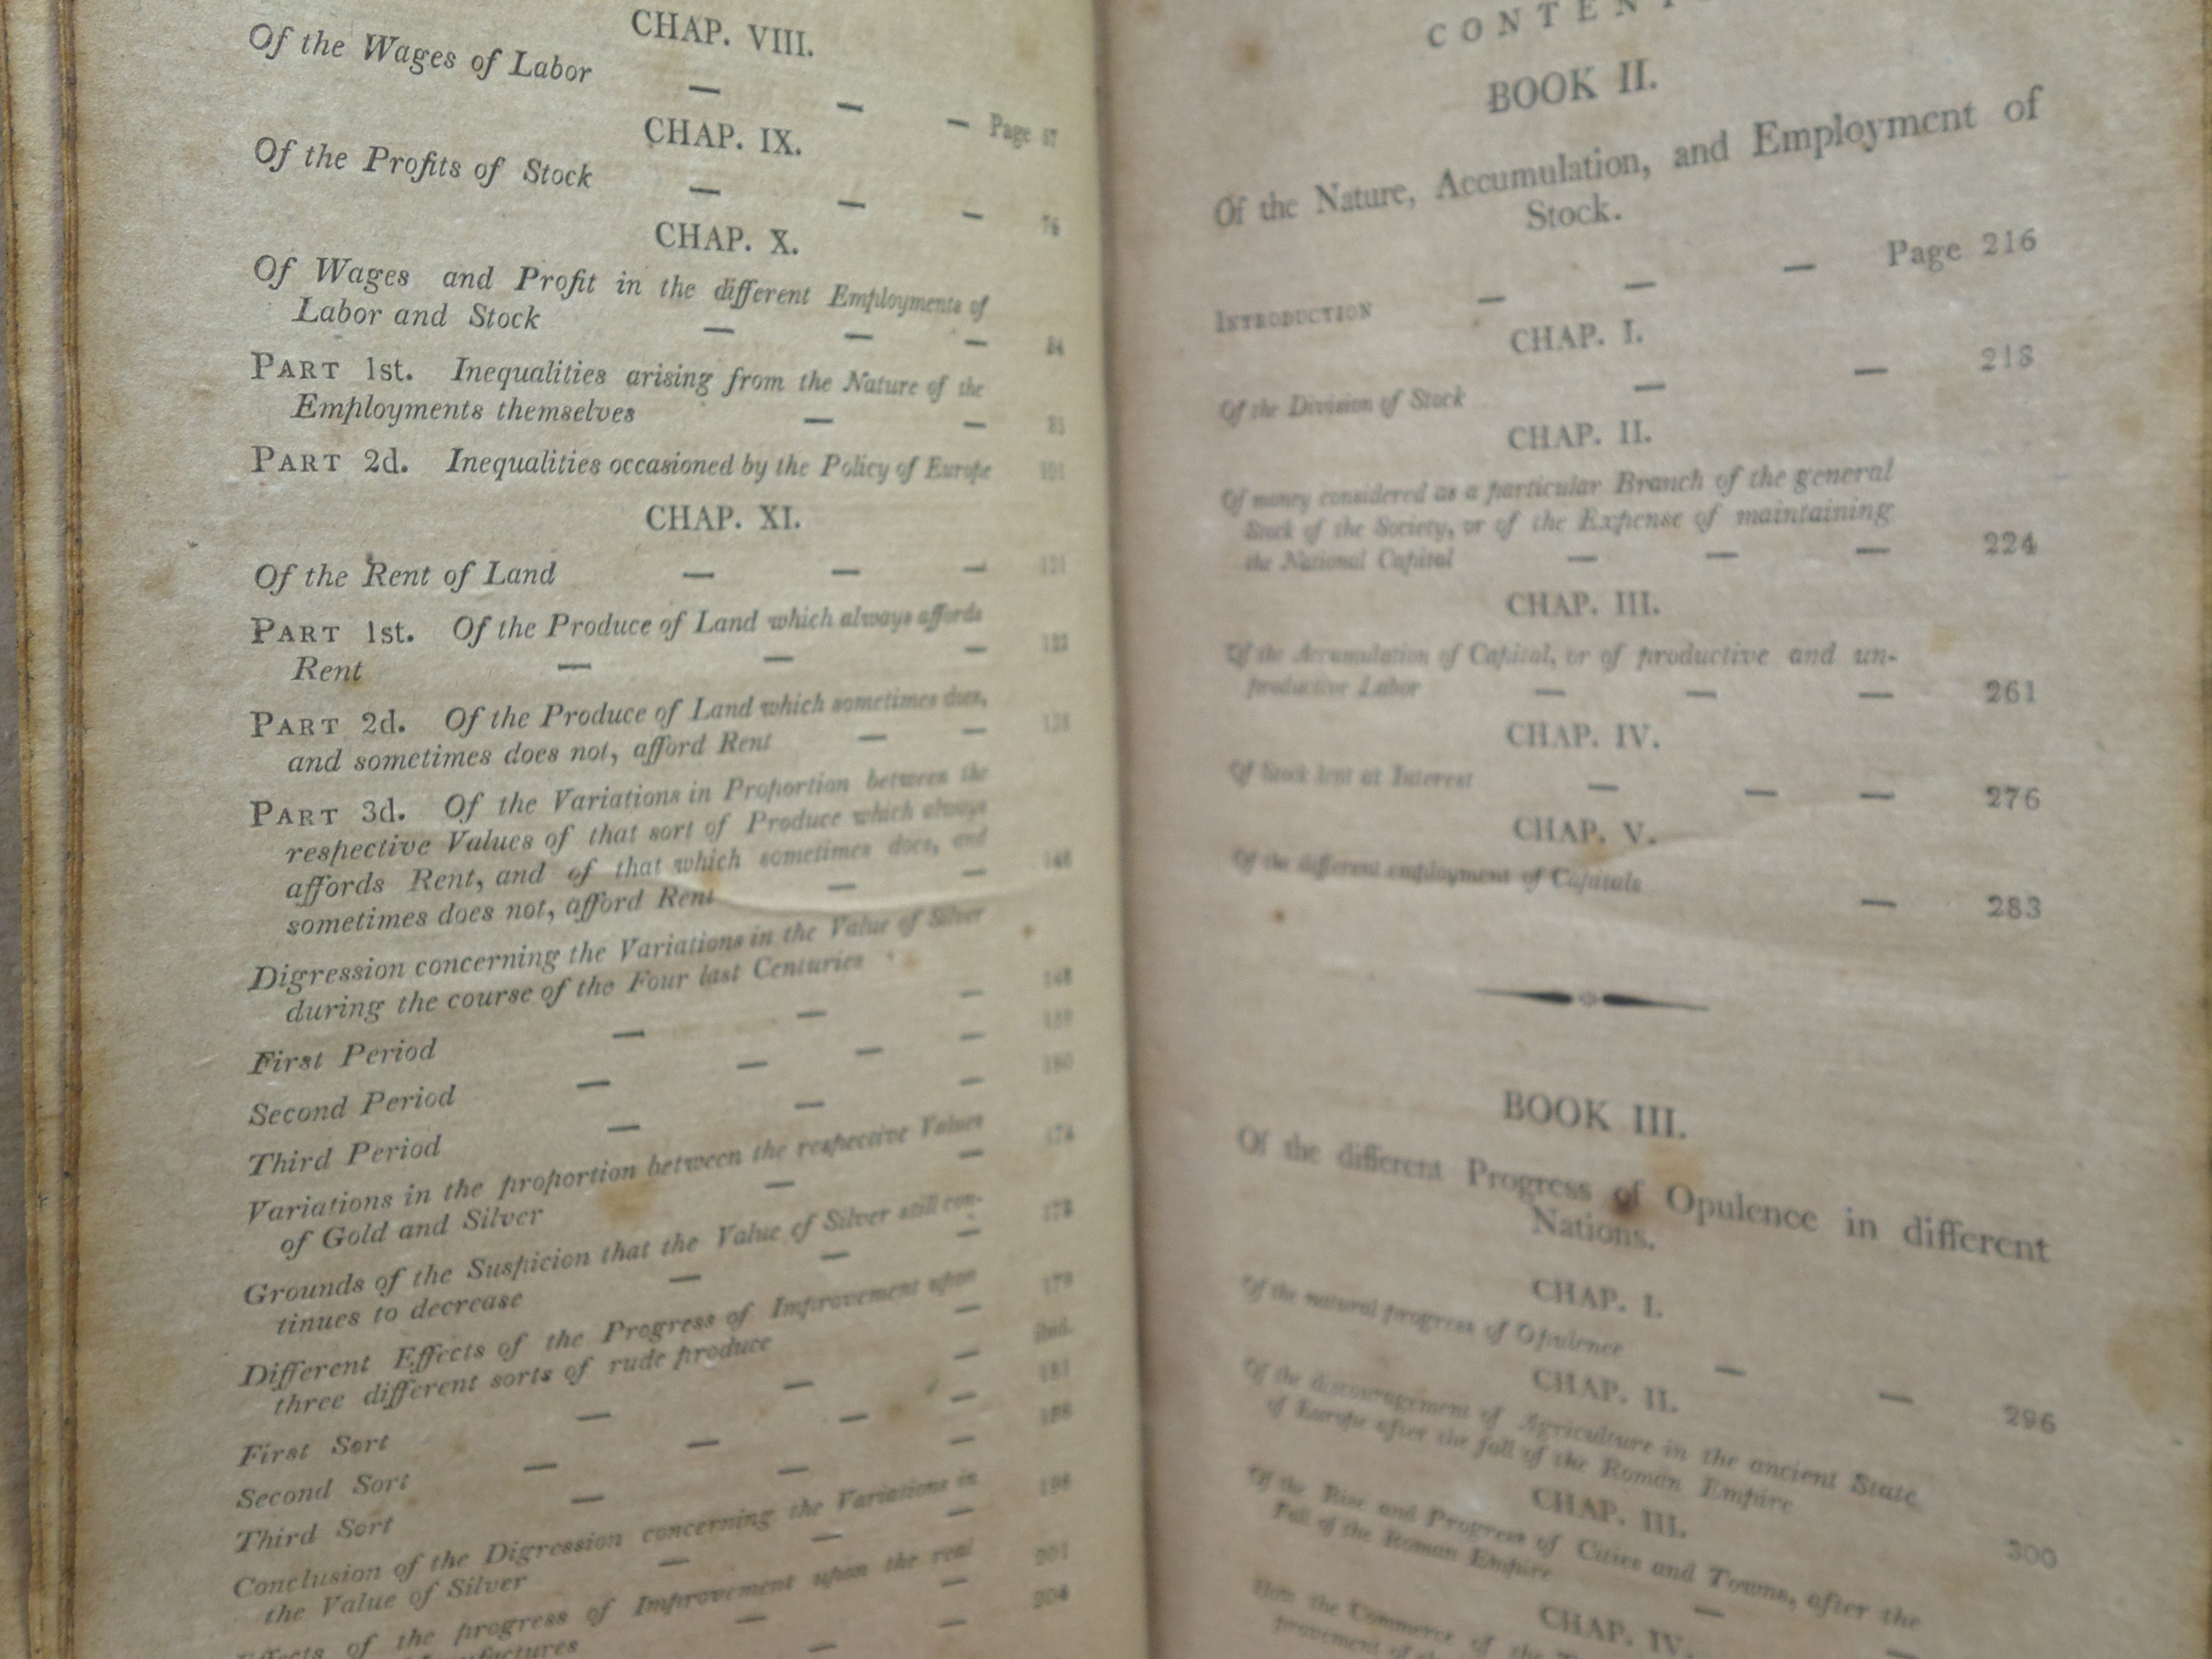 CHAP. VIII.
Of the Wages of Labor — — — Page 67
CHAP. IX.
Of the Profits of Stock — — — 76
CHAP. X.
Of Wages and Profit in the different Employments of
Labor and Stock — — — 84
PART 1st. Inequalities arising from the Nature of the
Employments themselves — — 85
PART 2d. Inequalities occasioned by the Policy of Europe 101
CHAP. XI.
Of the Rent of Land — — — 121
PART 1st. Of the Produce of Land which always affords
Rent — — — 123
PART 2d. Of the Produce of Land which sometimes does,
and sometimes does not, afford Rent — —
PART 3d. Of the Variations in Proportion between the
respective Values of that sort of Produce which always
affords Rent, and of that which sometimes does, and
sometimes does not, afford Rent — —
Digression concerning the Variations in the Value of Silver
during the course of the Four last Centuries
First Period — — — 148
Second Period — — — — 159
Third Period — — — 160
Variations in the proportion between the respective Values
of Gold and Silver — — 174
Grounds of the Suspicion that the Value of Silver still con-
tinues to decrease — — — 178
Different Effects of the Progress of Improvement upon
three different sorts of rude produce — 179
First Sort — — — ibid.
Second Sort — — — — 181
Third Sort — — — 188
Conclusion of the Digression concerning the Variations in
the Value of Silver — — — 196
Effects of the progress of Improvement upon the real
— — 201
— — 204
CONTEN
BOOK II.
Of the Nature, Accumulation, and Employment of
Stock.
INTRODUCTION — — — Page 216
CHAP. I.
Of the Division of Stock — — 218
CHAP. II.
Of money considered as a particular Branch of the general
Stock of the Society, or of the Expense of maintaining
the National Capital — — — 224
CHAP. III.
Of the Accumulation of Capital, or of productive and un-
productive Labor — — — 261
CHAP. IV.
Of Stock lent at Interest — — — 276
CHAP. V.
Of the different employment of Capitals — 283
BOOK III.
Of the different Progress of Opulence in different
Nations.
CHAP. I.
Of the natural progress of Opulence — — 296
CHAP. II.
Of the discouragement of Agriculture in the ancient State
of Europe after the fall of the Roman Empire 300
CHAP. III.
Of the Rise and Progress of Cities and Towns, after the
Fall of the Roman Empire — —
CHAP. IV.
How the Commerce of the
provement of